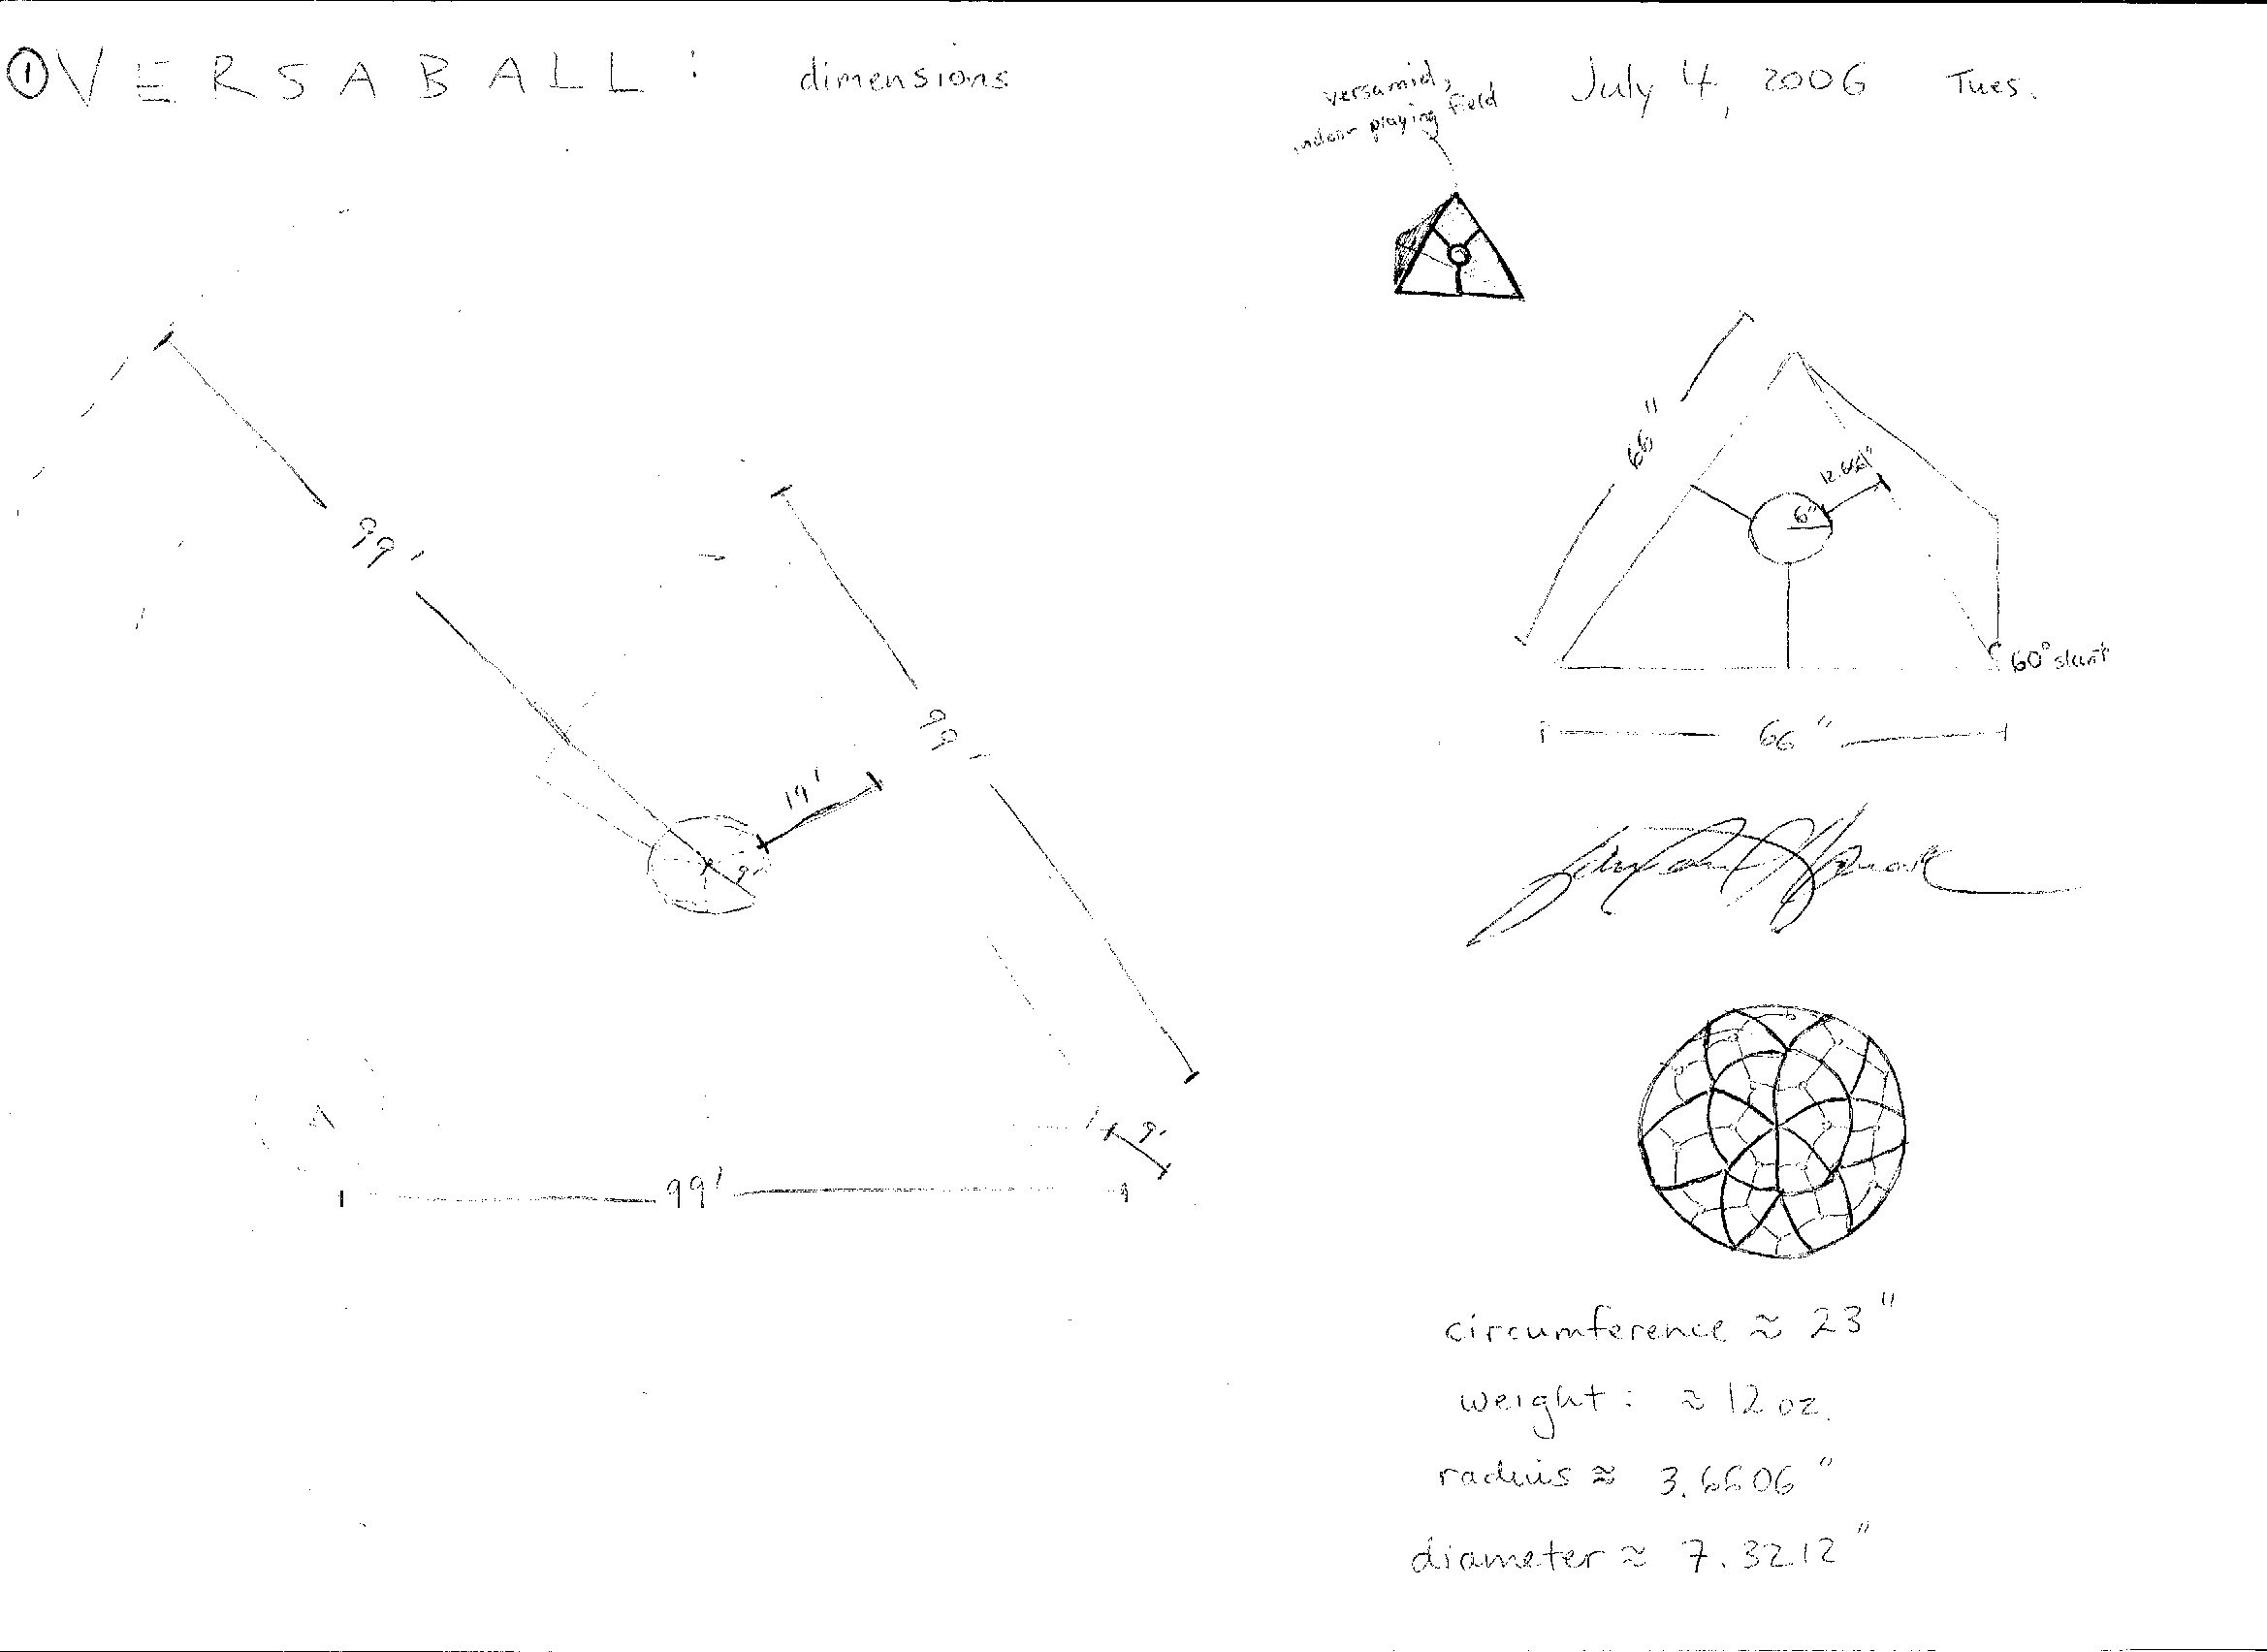 ① VERSABALL: dimensions
July 4, 2006 Tues.
versamid,
indoor playing field
99'
99'
19'
9'
9'
99'
66"
12.651"
6"
60° slant
66"
circumference ≈ 23"
weight: ≈ 12 oz.
radius ≈ 3.6606"
diameter ≈ 7.3212"